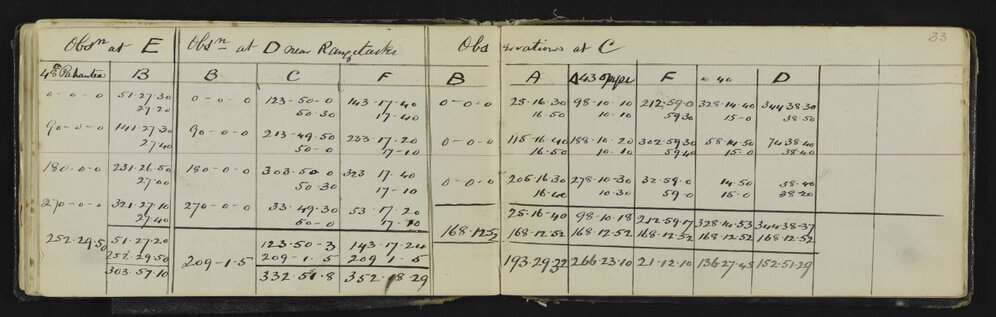 33
Obsn at E Obsn at D near Rangitaiki Observations at C
B B C F B A F D
0-0-0 51.27.30 0-0-0 123-50-0 143.17.40 0-0-0 25.16.30 98.10.10 212.59.0 328.14.40 344.38.30
27.20 50.30 17.40 16.50 10.10 59.30 15-0 38.50
90-0-0 141.27.30 90-0-0 213-49.50 233.17.20 0-0-0 115.16.40 188.10.20 302.59.30 58.14.50 74.38.40
27.40 50-0 17-10 16.50 10-10 59.40 15-0 38.40
180-0-0 231.26.50 180-0-0 303.50.0 323 17.40 0-0-0 205.16.30 278.10.30 32.59.0 14.50 38.40
27.00 50.30 17-10 16.40 10.30 59.0 15-0 38.20
270-0-0 321.27.10 270-0-0 33.49.30 53.17.20
27.40 50-0 17-10
25.16.40 98.10.18 212.59.17 328.14.53 344.38.37
252.29.50 51.27.20 123.50-3 143.17.24 168.12.52 168.12.52 168.12.52 168.12.52 168.12.52 168.12.52
252.29.50 209-1.5 209-1.5 209.1.5 193.29.32 266.23.10 21.12.10 136.27.45 152.51.29
303.57.10 332.51.8 352.18.29